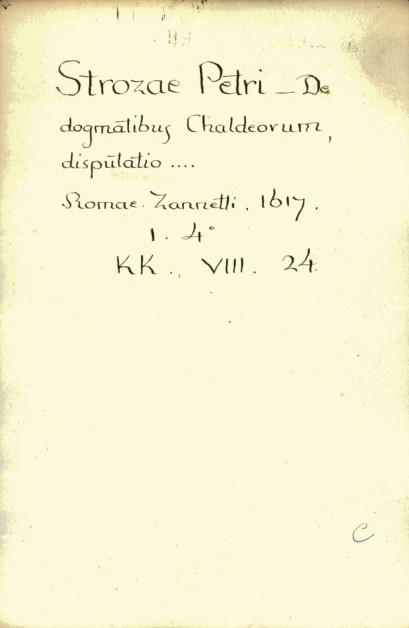 Strozae Petri — De
dogmatibus Chaldeorum,
disputatio ....
Romae. Zannetti. 1617.
1. 4°
KK., VIII. 24.
C